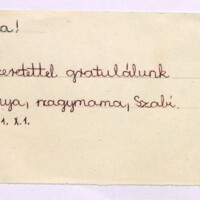 a!
zeretettel gratulálunk
nya, nagymama, Szabi.
1. X. 1.